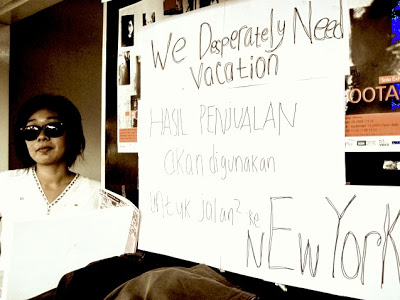 We Desperately Need
vacation
HASIL PENJUALAN
akan digunakan
untuk jalan2 ke
NEW YORK
OOTA